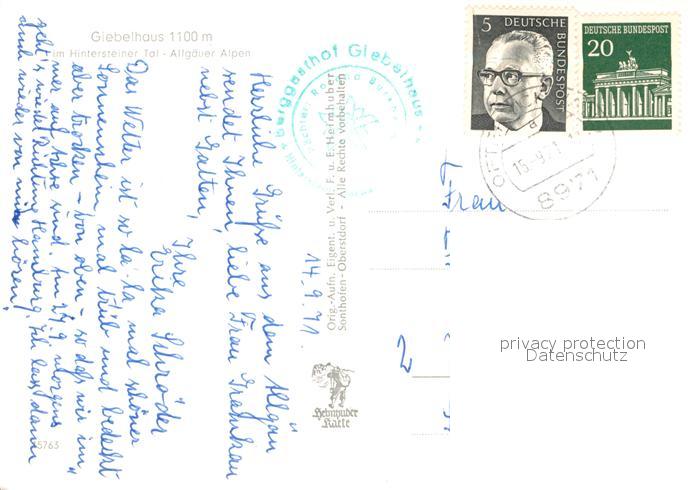 Giebelhaus 1100 m
im Hintersteiner Tal - Allgäuer Alpen
Berggasthof Giebelhaus
14.9.71.
Herzliche Grüße aus dem Allgäu
sendet Ihnen, liebe Frau
nebst Gatten,
Ihre
Erika Schröder
Das Wetter ist so la-la, mal schöner
Sonnenschein, mal trüb und bedeckt
aber trocken - von oben - so daß wir im-
mer auf Achse sind. Am 27.9. morgens
geht's wieder Richtung Hamburg. Ich lass dann
auch wieder von mir hören!
Orig.-Aufn. Eigent. u. Verl. F. u. E. Heimhuber
Sonthofen-Oberstdorf - Alle Rechte vorbehalten
Heimhuder
Karte
5763
5
DEUTSCHE
BUNDESPOST
DEUTSCHE BUNDESPOST
20
15.-9.71
8971
Frau
2
privacy protection
Datenschutz